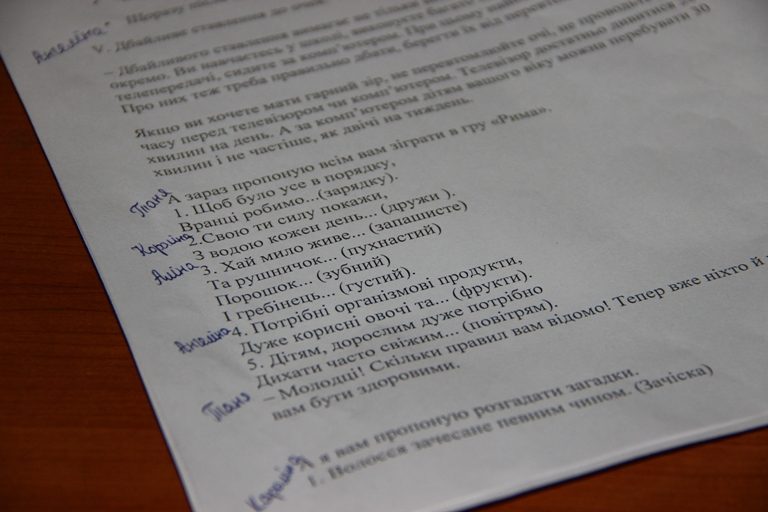 Щоразу після
Ангеліна
V. Дбайливе ставлення до очей
– Дбайливого ставлення вимагає не тільки
окремо. Ви навчаєтесь у школі,
телепередачі, сидите за комп’ютером. При цьому
Про них теж треба правильно дбати, берегти їх від
Якщо ви хочете мати гарний зір, не перевтомлюйте очі, не проводьте
часу перед телевізором чи комп’ютером. Телевізор достатньо дивитися
хвилин на день. А за комп’ютером дітям вашого віку можна перебувати 30
хвилин і не частіше, як двічі на тиждень.
Таня А зараз пропоную всім вам зіграти в гру «Рима».
1. Щоб було усе в порядку,
Вранці робимо...(зарядку).
Кароліна 2.Свою ти силу покажи,
З водою кожен день... (дружи ).
Аліна 3. Хай мило живе... (запашисте)
Та рушничок... (пухнастий)
Порошок... (зубний)
І гребінець... (густий).
Ангеліна 4. Потрібні організмові продукти,
Дуже корисні овочі та... (фрукти).
5. Дітям, дорослим дуже потрібно
Дихати часто свіжим... (повітрям).
Таня – Молодці! Скільки правил вам відомо! Тепер вже ніхто й
вам бути здоровими.
Кароліна А я вам пропоную розгадати загадки.
1. Волосся зачесане певним чином. (Зачіска)